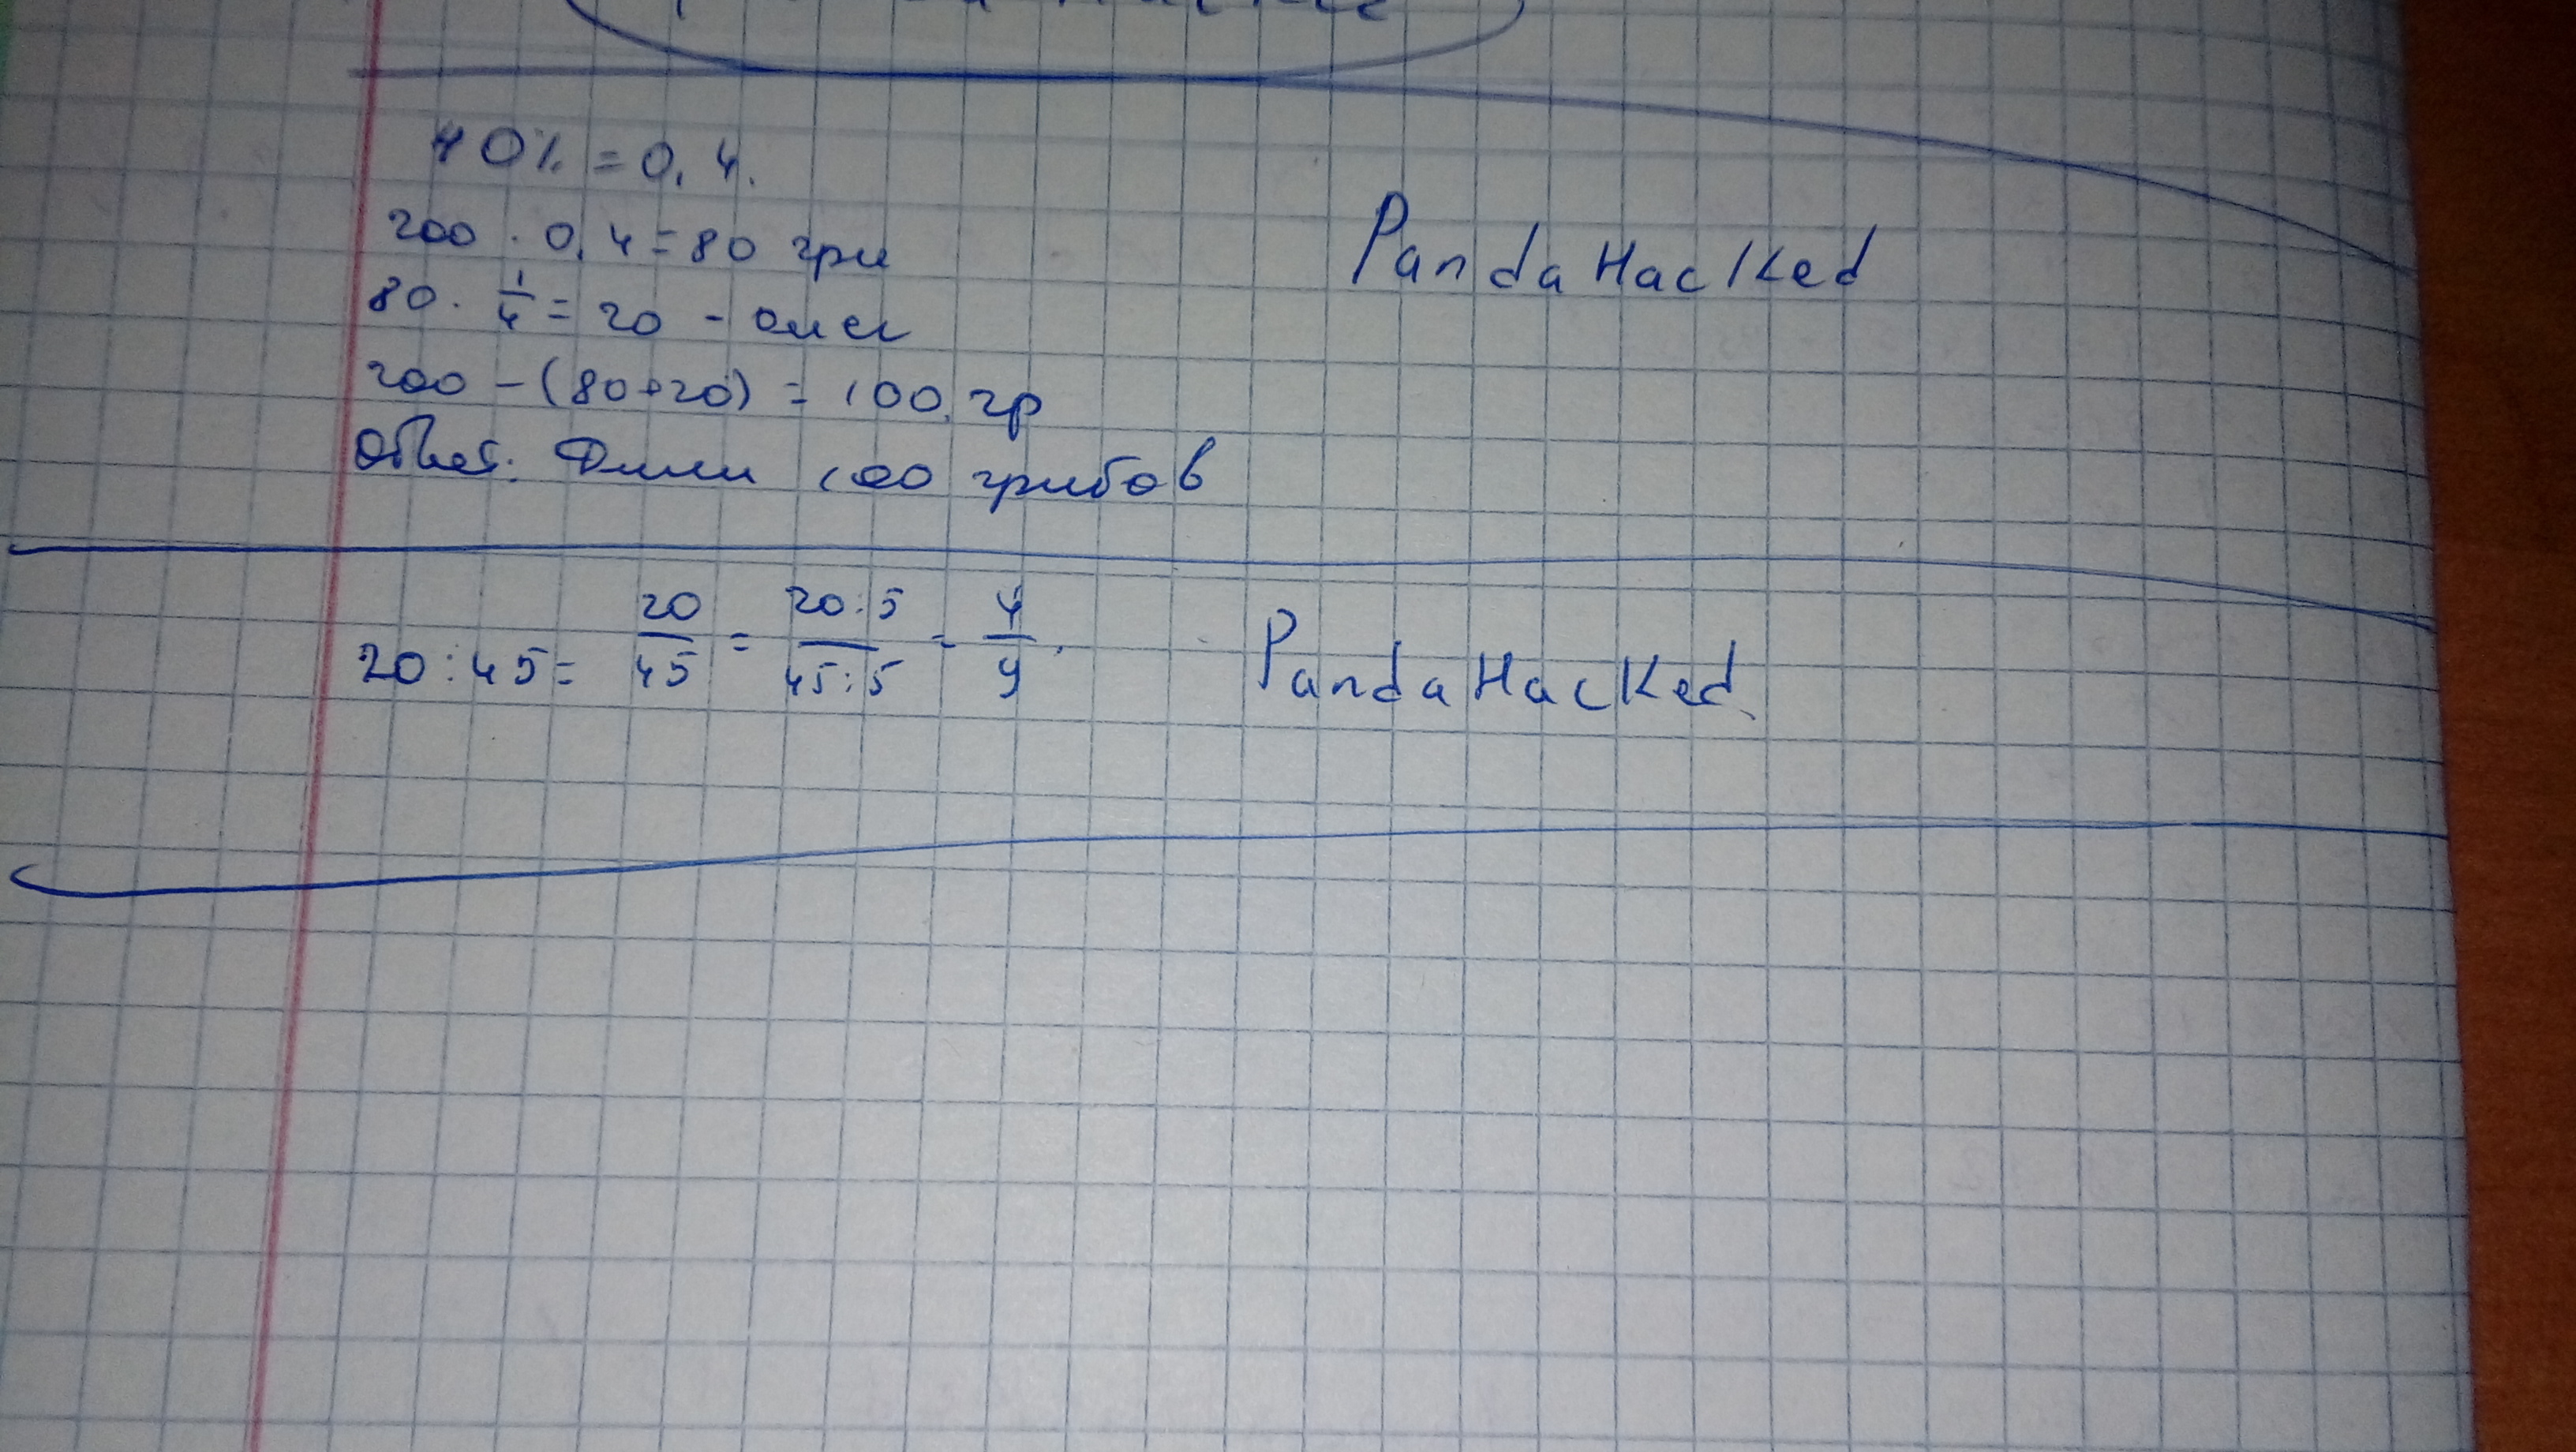 40% = 0,4.
200 · 0,4 = 80 гри
PandaHacked
80 · 1/4 = 20 - Олег
200 - (80+20) = 100 гр
Ответ: 100 грибов
20 : 45 = 20/45 = 20:5/45:5 = 4/9.
PandaHacked.